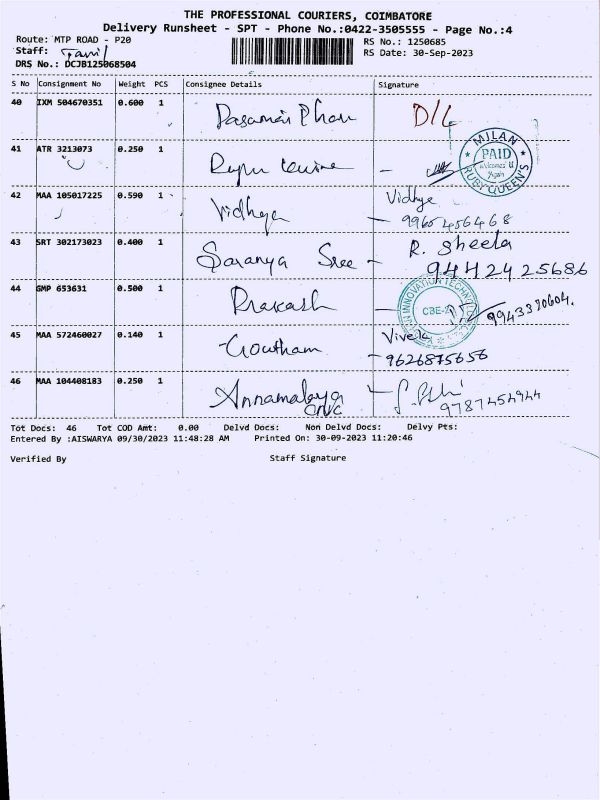 THE PROFESSIONAL COURIERS, COIMBATORE
Delivery Runsheet - SPT - Phone No.:0422-3505555 - Page No.:4
Route: MTP ROAD - P20
RS No.: 1250685
Staff: Tamil
RS Date: 30-Sep-2023
DRS No.: DCJB125068504
S No Consignment No Weight PCS Consignee Details Signature
40 IXM 504670351 0.600 1 D/L
41 ATR 3213073 0.250 1
MILAN
PAID
Welcomes U
Again
RUBY QUEEN'S
42 MAA 105017225 0.590 1 Vidhya Vidhya
- 9965456468
43 SRT 302173023 0.400 1 Saranya Sree - R. Sheela
9442425686
44 GMP 653631 0.500 1 Prakash - 9943330604.
INNOVATION TECHNO
CBE-
45 MAA 572460027 0.140 1 Goutham Vivek
- 9626875656
46 MAA 104408183 0.250 1 Annamalaya
9787454944
Tot Docs: 46 Tot COD Amt: 0.00 Delvd Docs: Non Delvd Docs: Delvy Pts:
Entered By :AISWARYA 09/30/2023 11:48:28 AM Printed On: 30-09-2023 11:20:46
Verified By Staff Signature